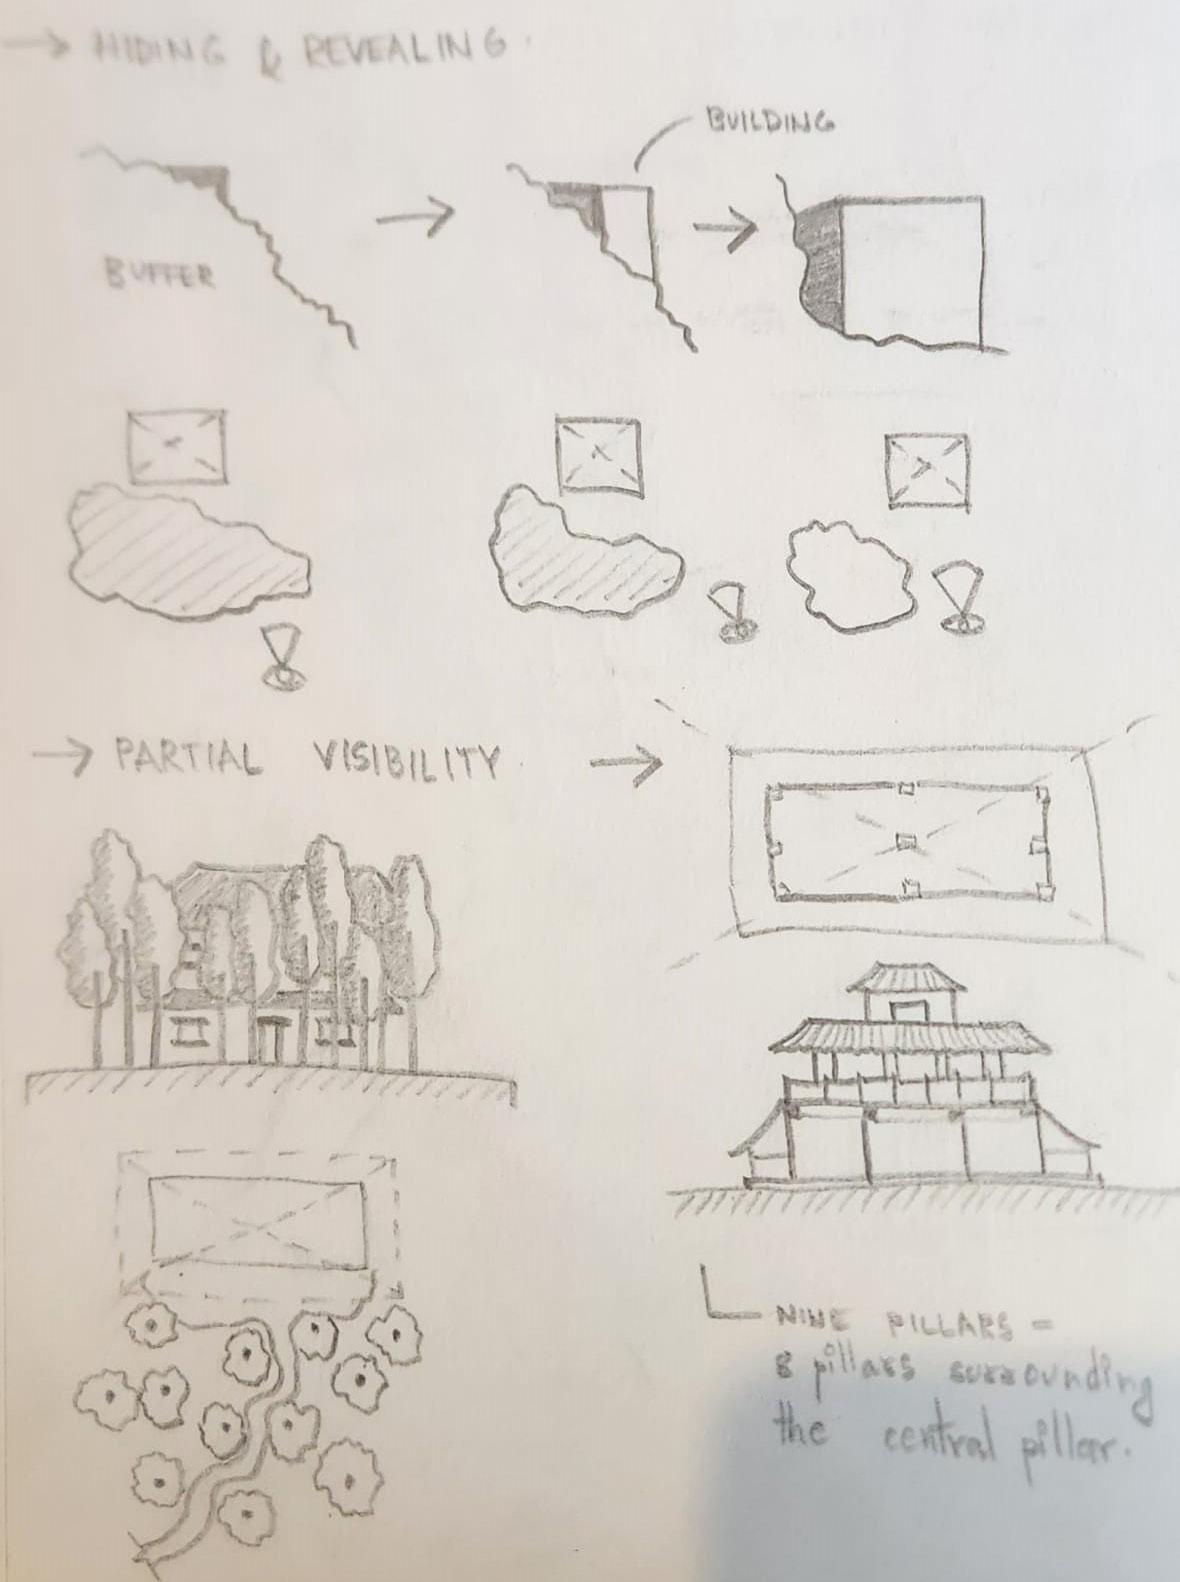 → HIDING & REVEALING.
BUILDING
BUFFER
→ PARTIAL VISIBILITY →
NINE PILLARS =
8 pillars surrounding
the central pillar.